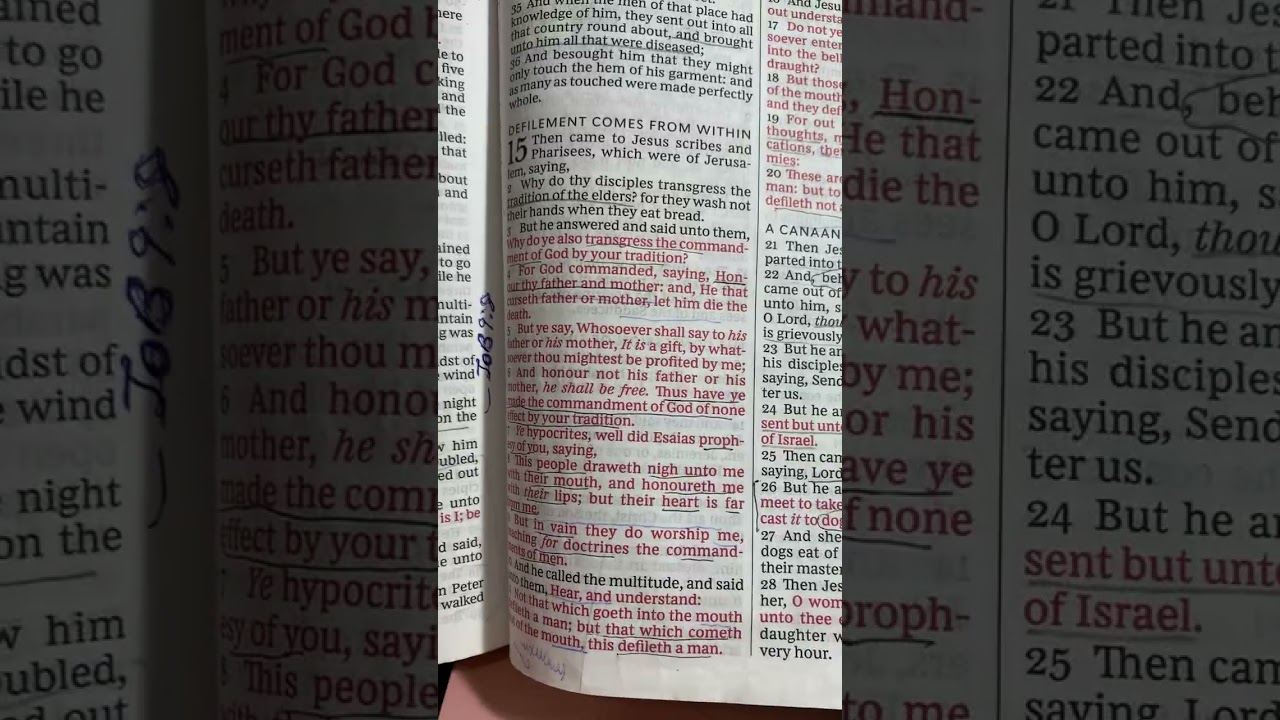 ained
to go
ile he
multi-
ntain
g was
JOB 9:8
dst of
wind
night
on the
w him
oubled,
d out
ment of God
4 For God c
our thy father
curseth father
death.
5 But ye say,
father or his m
soever thou m
6 And hono
mother, he sh
made the comm
effect by your t
7 Ye hypocrit
esy of you, sayi
8 This people
here
le to
five
king
and
d the
lled:
that
bout
and
ained
to go
ile he
multi-
ntain
g was
JOB 9:8
dst of
wind
night
on the
w him
ubled,
ed out
unto
is I; be
d said,
e unto
n Peter
walked
35 And when the men of that place had
knowledge of him, they sent out into all
that country round about, and brought
unto him all that were diseased;
36 And besought him that they might
only touch the hem of his garment: and
as many as touched were made perfectly
whole.
DEFILEMENT COMES FROM WITHIN
15 Then came to Jesus scribes and
Pharisees, which were of Jerusa-
lem, saying,
2 Why do thy disciples transgress the
tradition of the elders? for they wash not
their hands when they eat bread.
3 But he answered and said unto them,
Why do ye also transgress the command-
ment of God by your tradition?
4 For God commanded, saying, Hon-
our thy father and mother: and, He that
curseth father or mother, let him die the
death.
5 But ye say, Whosoever shall say to his
father or his mother, It is a gift, by what-
soever thou mightest be profited by me;
6 And honour not his father or his
mother, he shall be free. Thus have ye
made the commandment of God of none
effect by your tradition.
7 Ye hypocrites, well did Esaias proph-
esy of you, saying,
8 This people draweth nigh unto me
with their mouth, and honoureth me
with their lips; but their heart is far
from me.
But in vain they do worship me,
teaching for doctrines the command-
ments of men.
And he called the multitude, and said
unto them, Hear, and understand:
Not that which goeth into the mouth
defileth a man; but that which cometh
out of the mouth, this defileth a man.
16 And Jesu
out understa
17 Do not ye
soever enter
into the bell
draught?
18 But those
of the mouth
and they def
19 For out
thoughts, m
cations, the
mies:
20 These are
man: but to
defileth not
A CANAAN
21 Then Jes
parted into
22 And, beh
came out of
unto him, s
O Lord, thou
is grievously
23 But he an
his disciples
saying, Send
ter us.
24 But he an
sent but unto
of Israel.
25 Then can
saying, Lord
26 But he a
meet to take
cast it to dog
27 And she
dogs eat of
their master
28 Then Jes
her, O wom
unto thee
daughter w
very hour.
mand-
, Hon-
He that
die the
y to his
what-
by me;
or his
ave ye
f none
proph-
to me
21 Then Jes
parted into t
22 And, beh
came out of
unto him, s
O Lord, thou
is grievously
23 But he an
his disciples
saying, Send
ter us.
24 But he an
sent but unto
of Israel.
25 Then can
saying, Lord